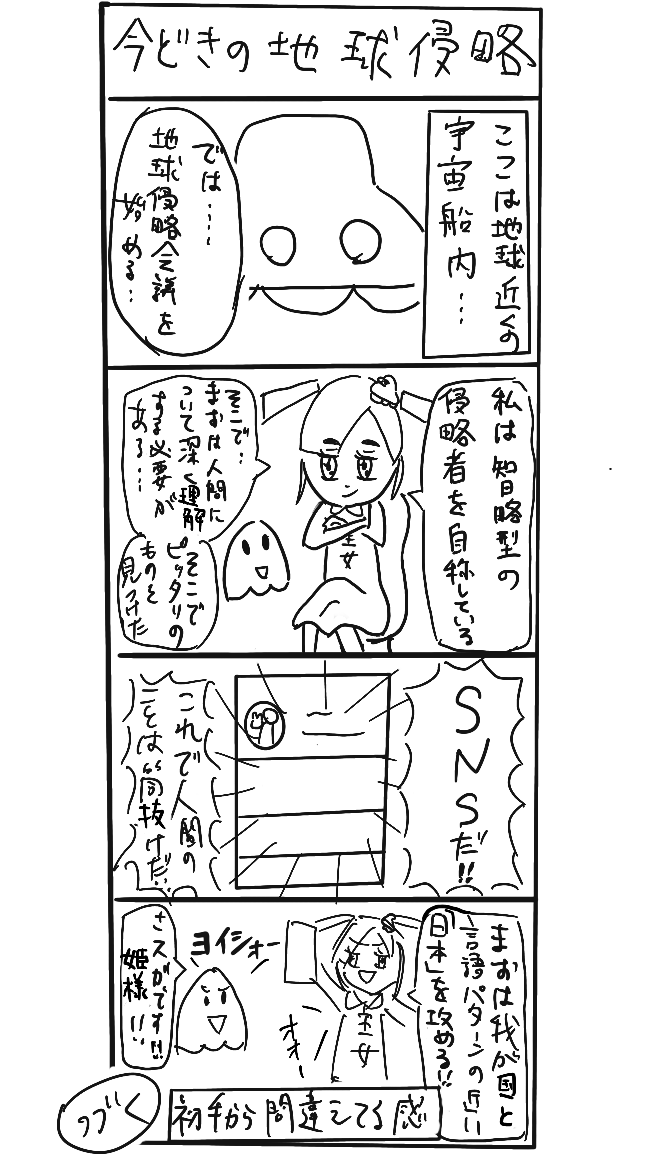 今どきの地球侵略
ここは地球近くの
宇宙船内…
では……
地球侵略会議を
始める…
私は智略型の
侵略者を自称している
そこで…
まずは人間に
ついて深く理解
する必要が
ある…
そこで
ピッタリの
ものを
見つけた
SNSだ!!
これで人間の
ことは筒抜けだ!!
王女
まずは我が国と
言語パターンの近い
「日本」を攻める!!
王女
オオー
ヨイショー
さスがです!!
姫様!!
初手から間違えてる感
つづく